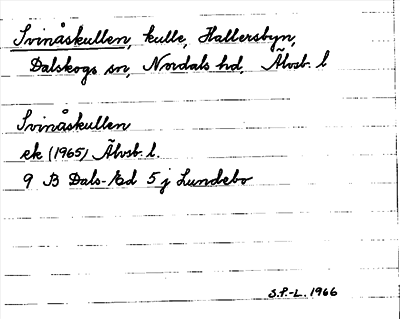 Svinåskullen, kulle, Hallersbyn,
Dalskogs sn, Nordals hd, Älvsb. l
Svinåskullen
ek (1965) Älvsb. l.
9 B Dals-Ed 5 j Lundebo
S.P.-L. 1966